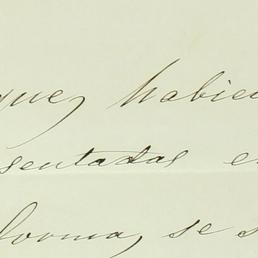 que, habie
sentadas e
forma, se s